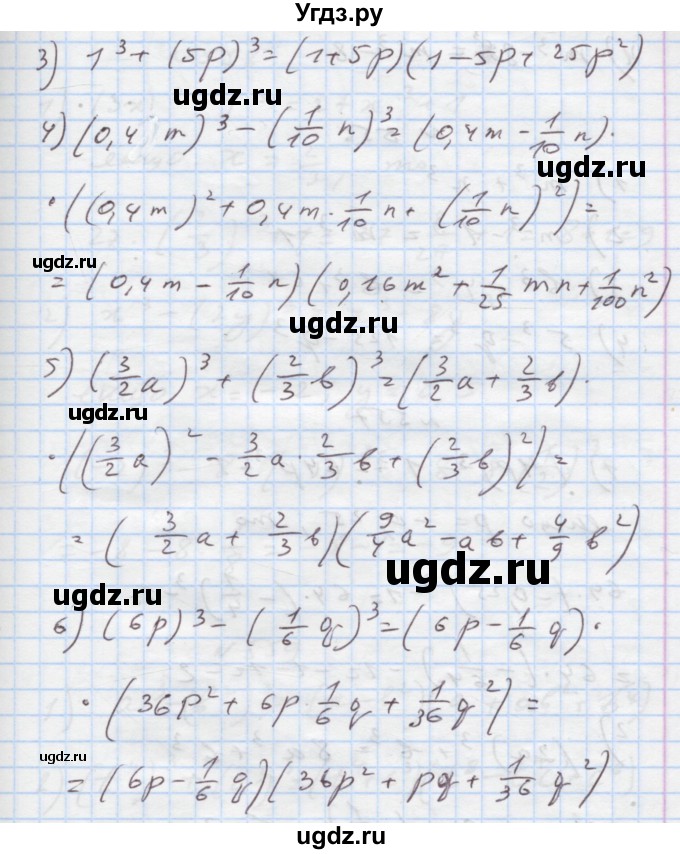 Угдз.ру
3) 1³ + (5p)³ = (1+5p)(1−5p+25p²)
ugdz.ru
4) (0,4 m)³ − (1/10 n)³ = (0,4m − 1/10 n)·
ugdz.ru
·((0,4m)² + 0,4m · 1/10 n + (1/10 n)²) =
ugdz.ru
= (0,4m − 1/10 n)(0,16m² + 1/25 mn + 1/100 n²)
ugdz.ru
5) (3/2 a)³ + (2/3 b)³ = (3/2 a + 2/3 b)·
ugdz.ru
·((3/2 a)² − 3/2 a · 2/3 b + (2/3 b)²) =
= (3/2 a + 2/3 b)(9/4 a² − ab + 4/9 b²)
ugdz.ru
6) (6p)³ − (1/6 q)³ = (6p − 1/6 q)·
·(36p² + 6p · 1/6 q + 1/36 q²) =
ugdz.ru
= (6p − 1/6 q)(36p² + pq + 1/36 q²)
ugdz.ru